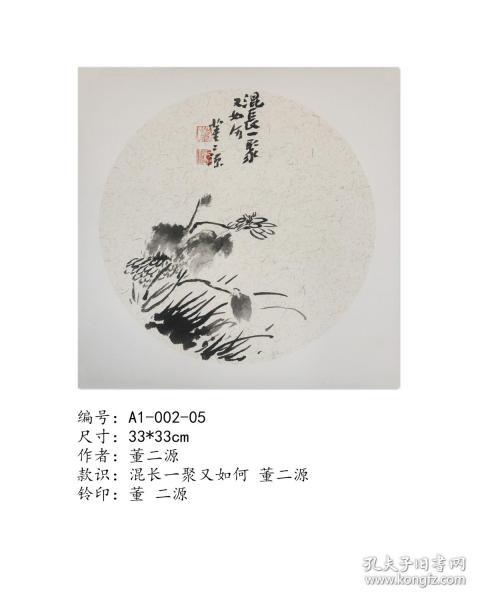 混长一聚
又如何
董二源
编号：A1-002-05
尺寸：33*33cm
作者：董二源
款识：混长一聚又如何 董二源
铃印：董 二源
孔夫子旧书网
www.kongfz.com